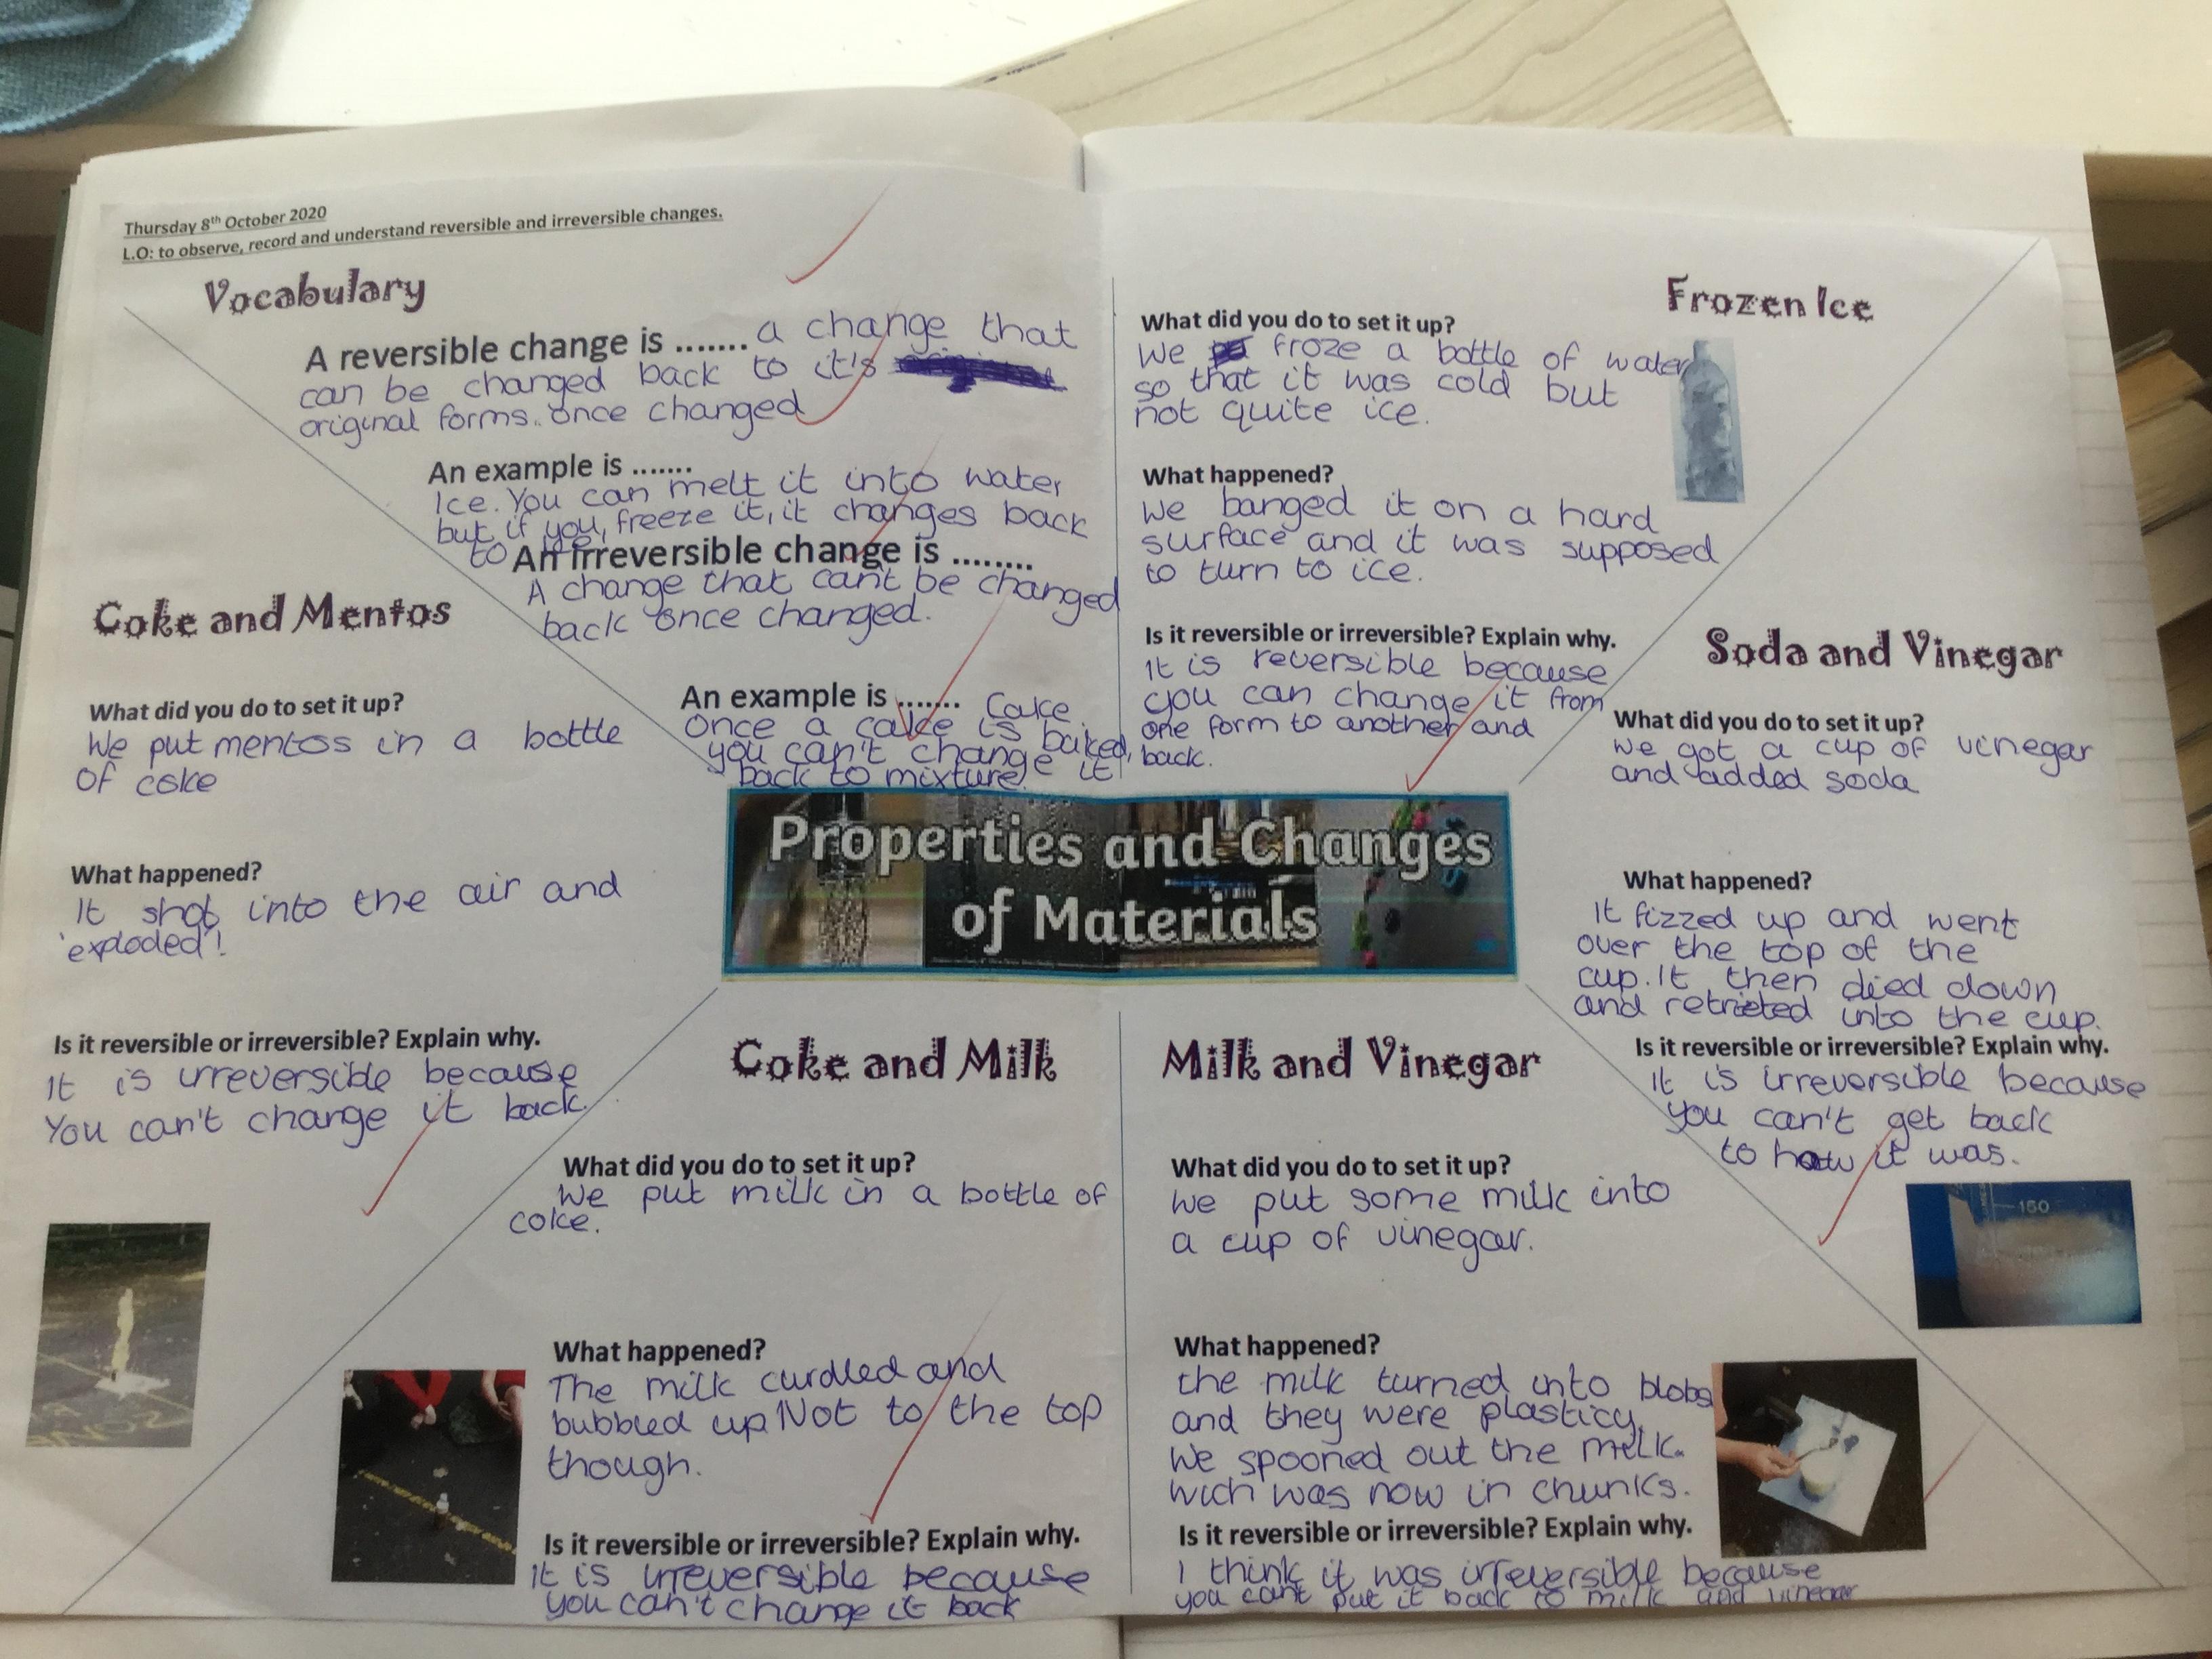 Thursday 8th October 2020
L.O: to observe, record and understand reversible and irreversible changes.
Vocabulary
A reversible change is ....... a change that
can be changed back to it's
original forms. once changed
An example is .......
Ice. You can melt it into water
but if you freeze it, it changes back
to ice.
An irreversible change is ........
A change that can't be changed
back once changed.
An example is ....... Cake.
Once a cake is baked,
you can't change it
back to mixture.
Frozen Ice
What did you do to set it up?
We froze a bottle of water
so that it was cold but
not quite ice.
What happened?
We banged it on a hard
surface and it was supposed
to turn to ice.
Is it reversible or irreversible? Explain why.
It is reversible because
you can change it from
one form to another and
back.
Coke and Mentos
What did you do to set it up?
We put mentos in a bottle
of coke
What happened?
It shot into the air and
'exploded'!
Is it reversible or irreversible? Explain why.
It is irreversible because
You can't change it back.
Properties and Changes
of Materials
Soda and Vinegar
What did you do to set it up?
We got a cup of vinegar
and added soda
What happened?
It fizzed up and went
over the top of the
cup. It then died down
and retrieted into the cup.
Is it reversible or irreversible? Explain why.
It is irreversible because
you can't get back
to how it was.
150
Coke and Milk
What did you do to set it up?
We put milk in a bottle of
coke.
What happened?
The milk curdled and
bubbled up. Not to the top
though.
Is it reversible or irreversible? Explain why.
It is irreversible because
you can't change it back
Milk and Vinegar
What did you do to set it up?
We put some milk into
a cup of vinegar.
What happened?
the milk turned into blobs
and they were plasticy.
We spooned out the milk.
wich was now in chunks.
Is it reversible or irreversible? Explain why.
I think it was irreversible because
you cant put it back to milk and vinegar